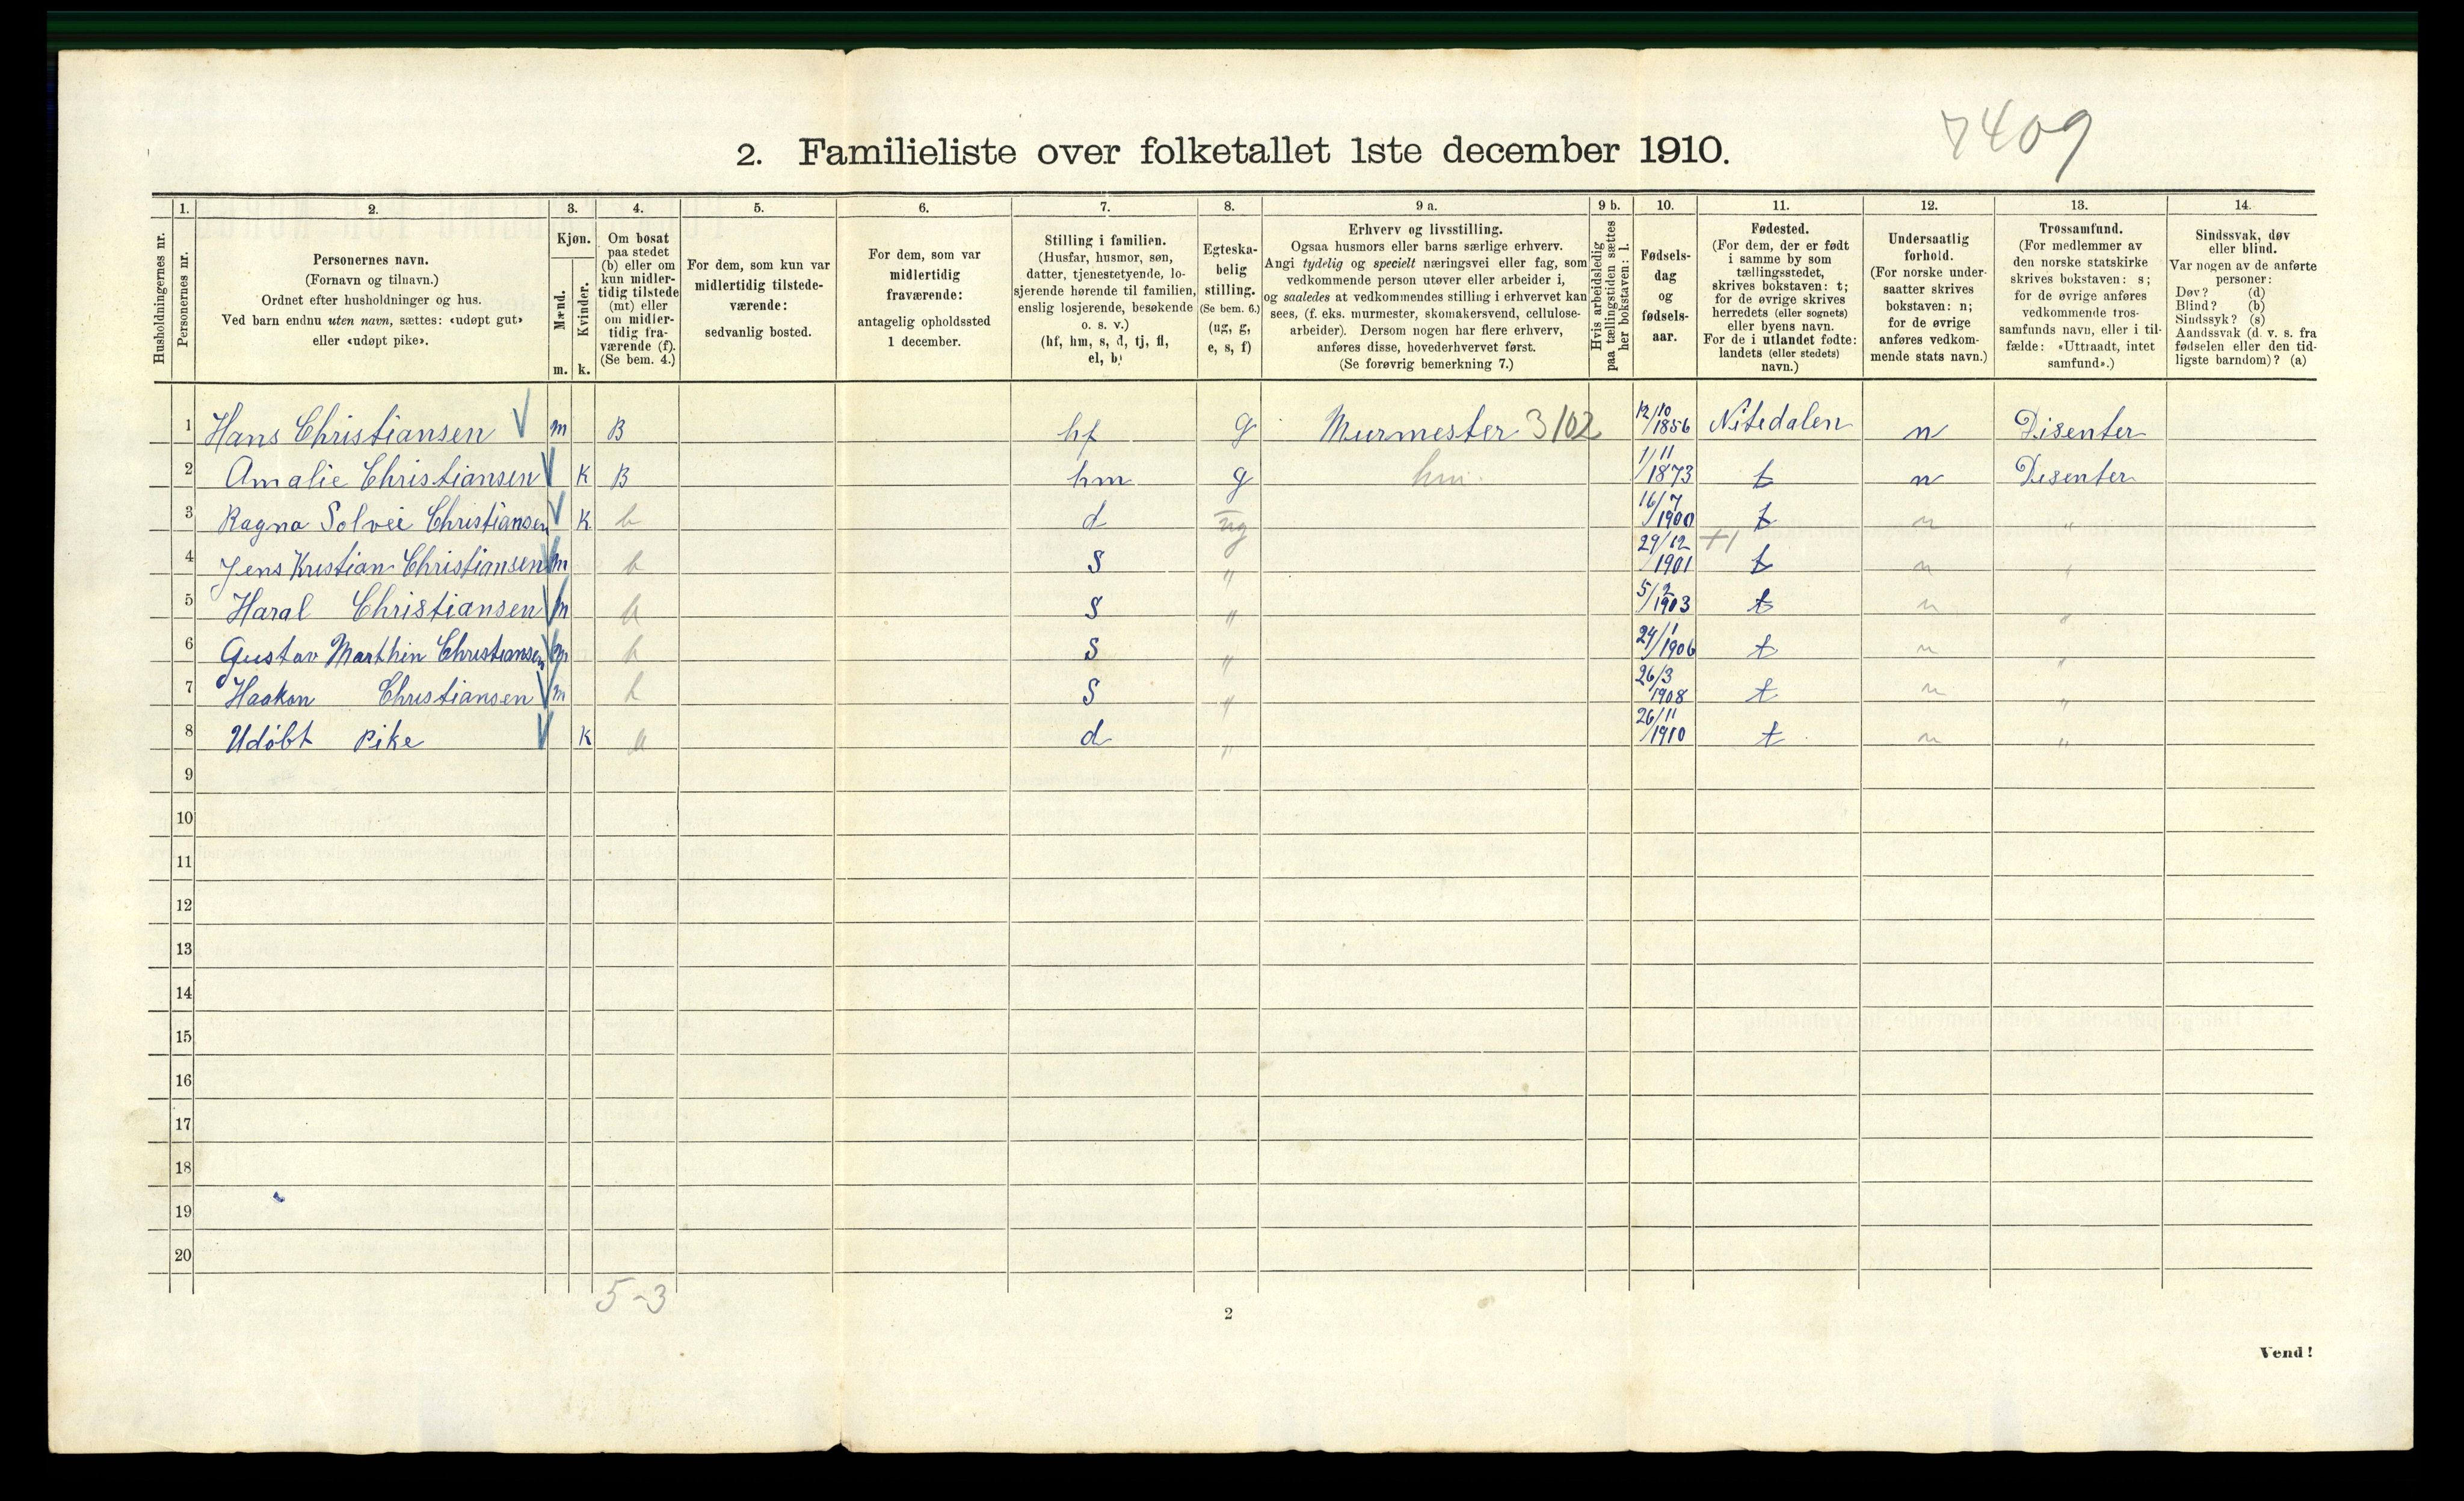 7409
2. Familieliste over folketallet 1ste december 1910.
Husholdningernes nr.
1. Personernes nr.
2. Personernes navn.
(Fornavn og tilnavn.)
Ordnet efter husholdninger og hus.
Ved barn endnu uten navn, sættes: «udøpt gut»
eller «udøpt pike».
3. Kjøn.
Mænd. m.
Kvinder. k.
4. Om bosat
paa stedet
(b) eller om
kun midler-
tidig tilstede
(mt) eller
om midler-
tidig fra-
værende (f).
(Se bem. 4.)
5. For dem, som kun var
midlertidig tilstede-
værende:
sedvanlig bosted.
6. For dem, som var
midlertidig
fraværende:
antagelig opholdssted
1 december.
7. Stilling i familien.
(Husfar, husmor, søn,
datter, tjenestetyende, lo-
sjerende hørende til familien,
enslig losjerende, besøkende
o. s. v.)
(hf, hm, s, d, tj, fl,
el, b)
8. Egteska-
belig
stilling.
(Se bem. 6.)
(ug, g,
e, s, f)
9 a. Erhverv og livsstilling.
Ogsaa husmors eller barns særlige erhverv.
Angi tydelig og specielt næringsvei eller fag, som
vedkommende person utøver eller arbeider i,
og saaledes at vedkommendes stilling i erhvervet kan
sees, (f. eks. murmester, skomakersvend, cellulose-
arbeider). Dersom nogen har flere erhverv,
anføres disse, hovederhvervet først.
(Se forøvrig bemerkning 7.)
9 b. Hvis arbeidsledig
paa tællingstiden sættes
her bokstaven: l.
10. Fødsels-
dag
og
fødsels-
aar.
11. Fødested.
(For dem, der er født
i samme by som
tællingsstedet,
skrives bokstaven: t;
for de øvrige skrives
herredets (eller sognets)
eller byens navn.
For de i utlandet fødte:
landets (eller stedets)
navn.)
12. Undersaatlig
forhold.
(For norske under-
saatter skrives
bokstaven: n;
for de øvrige
anføres vedkom-
mende stats navn.)
13. Trossamfund.
(For medlemmer av
den norske statskirke
skrives bokstaven: s;
for de øvrige anføres
vedkommende tros-
samfunds navn, eller i til-
fælde: «Uttraadt, intet
samfund».)
14. Sindssvak, døv
eller blind.
Var nogen av de anførte
personer:
Døv? (d)
Blind? (b)
Sindssyk? (s)
Aandssvak (d. v. s. fra
fødselen eller den tid-
ligste barndom)? (a)
1 Hans Christiansen m B hf g Murmester 3/02 12/10 1856 Nitedalen n Disenter
2 Amalie Christiansen K B hm g hm. 1/11 1873 t n Disenter
3 Ragna Solvei Christiansen K b d ug 16/7 1900 t n "
4 Jens Kristian Christiansen m b S " 29/12 1901 t n "
5 Haral Christiansen m b S " 5/2 1903 t n "
6 Gustav Marthin Christiansen m b S " 24/1 1906 t n "
7 Haakon Christiansen m b S " 26/3 1908 t n "
8 Udöbt pike K b d " 26/11 1910 t n "
9
10
11
12
13
14
15
16
17
18
19
20
5-3
2
Vend!